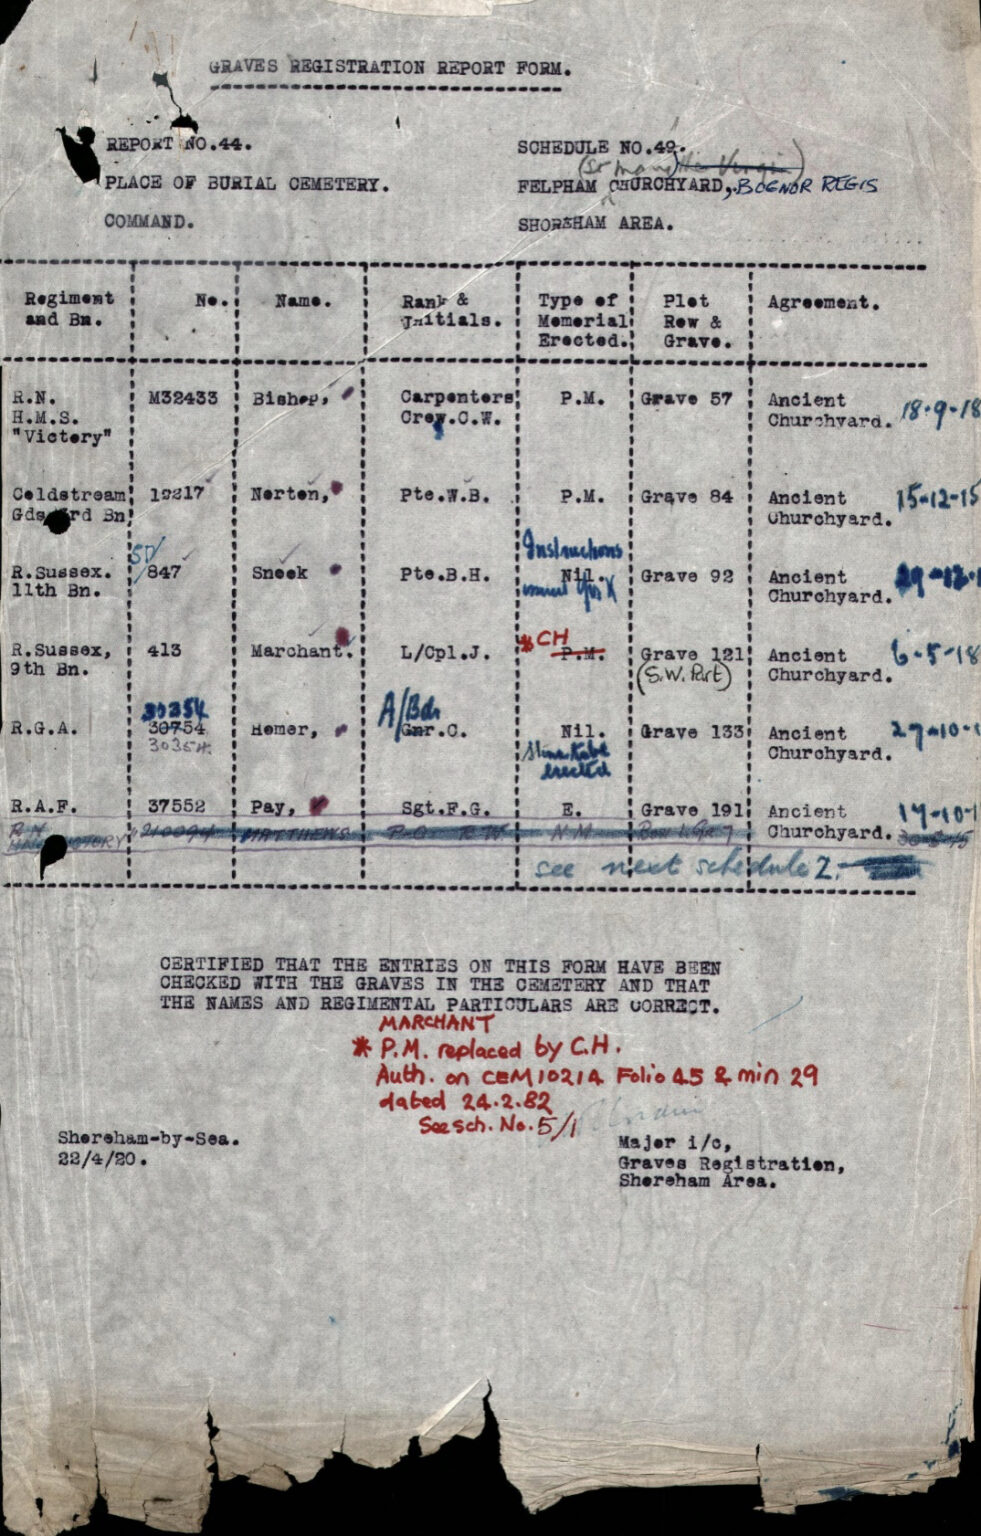 GRAVES REGISTRATION REPORT FORM.
REPORT NO.44. SCHEDULE NO.49.
(St Mary the Virgin)
PLACE OF BURIAL CEMETERY. FELPHAM CHURCHYARD, BOGNOR REGIS
COMMAND. SHOREHAM AREA.
Regiment No. Name. Rank & Type of Plot Agreement.
and Bn. Initials. Memorial Row &
Erected. Grave.
R.N. M32433 Bishop, Carpenters P.M. Grave 57 Ancient 18-9-18
H.M.S. Crew.C.W. Churchyard.
"Victory"
Coldstream 19217 Norton, Pte.W.B. P.M. Grave 84 Ancient 15-12-15
Gds 3rd Bn Churchyard.
SD/ Instructions
R.Sussex. 847 Snook Pte.B.H. Nil. Grave 92 Ancient
11th Bn. Churchyard.
* CH
R.Sussex, 413 Marchant. L/Cpl.J. P.M. Grave 121 Ancient 6-5-18
9th Bn. (S.W. Part) Churchyard.
30354 A/Bdr
R.G.A. 30754 Homer, Gnr.C. Nil. Grave 133 Ancient 27-10-
30354 Churchyard.
erected
R.A.F. 37552 Pay, Sgt.F.G. E. Grave 191 Ancient
R.N. 210094 MATTHEWS P.O. R.W. N.M. Row 1. Gr 7 Churchyard.
VICTORY"
see next schedule 2.
CERTIFIED THAT THE ENTRIES ON THIS FORM HAVE BEEN
CHECKED WITH THE GRAVES IN THE CEMETERY AND THAT
THE NAMES AND REGIMENTAL PARTICULARS ARE CORRECT.
MARCHANT
* P.M. replaced by C.H.
Auth. on CEM10214 Folio 45 & min 29
dated 24.2.82
See sch. No. 5/1
Shoreham-by-Sea. Major i/c,
22/4/20. Graves Registration,
Shoreham Area.